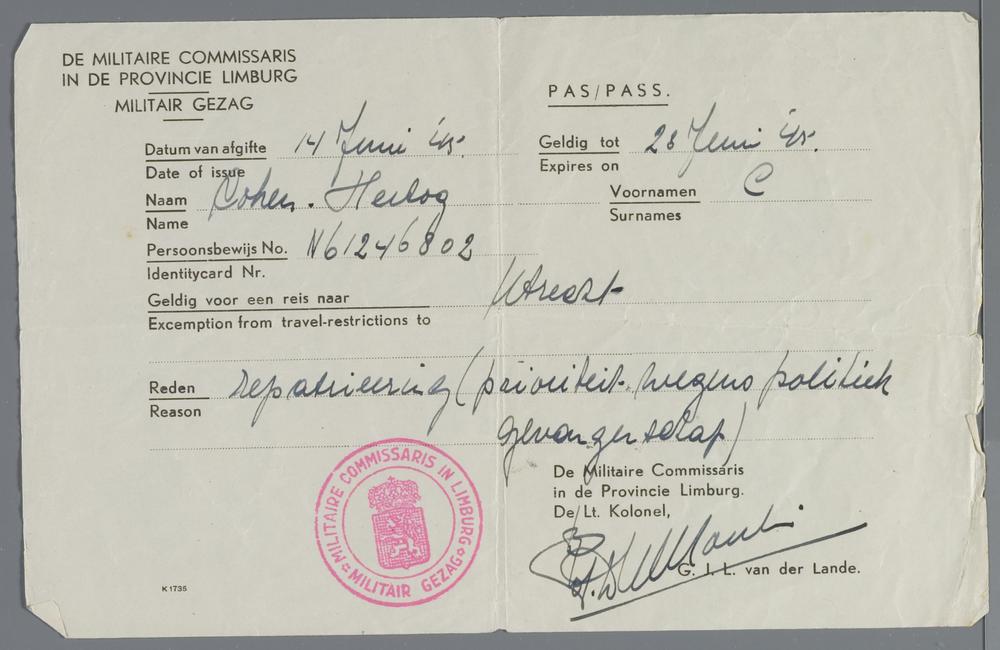 DE MILITAIRE COMMISSARIS
IN DE PROVINCIE LIMBURG
MILITAIR GEZAG
PAS/PASS.
Datum van afgifte 14 Juni '45.
Date of issue
Geldig tot 28 Juni '45.
Expires on
Naam Cohen. Hertog
Name
Voornamen C
Surnames
Persoonsbewijs No. N61246802
Identitycard Nr.
Geldig voor een reis naar Utrecht
Excemption from travel-restrictions to
Reden repatrieering (prioriteit wegens politiek
Reason
gevangenschap)
De Militaire Commissaris
in de Provincie Limburg.
De/Lt. Kolonel,
G. J. L. van der Lande.
MILITAIRE COMMISSARIS IN LIMBURG
MILITAIR GEZAG
K 1735